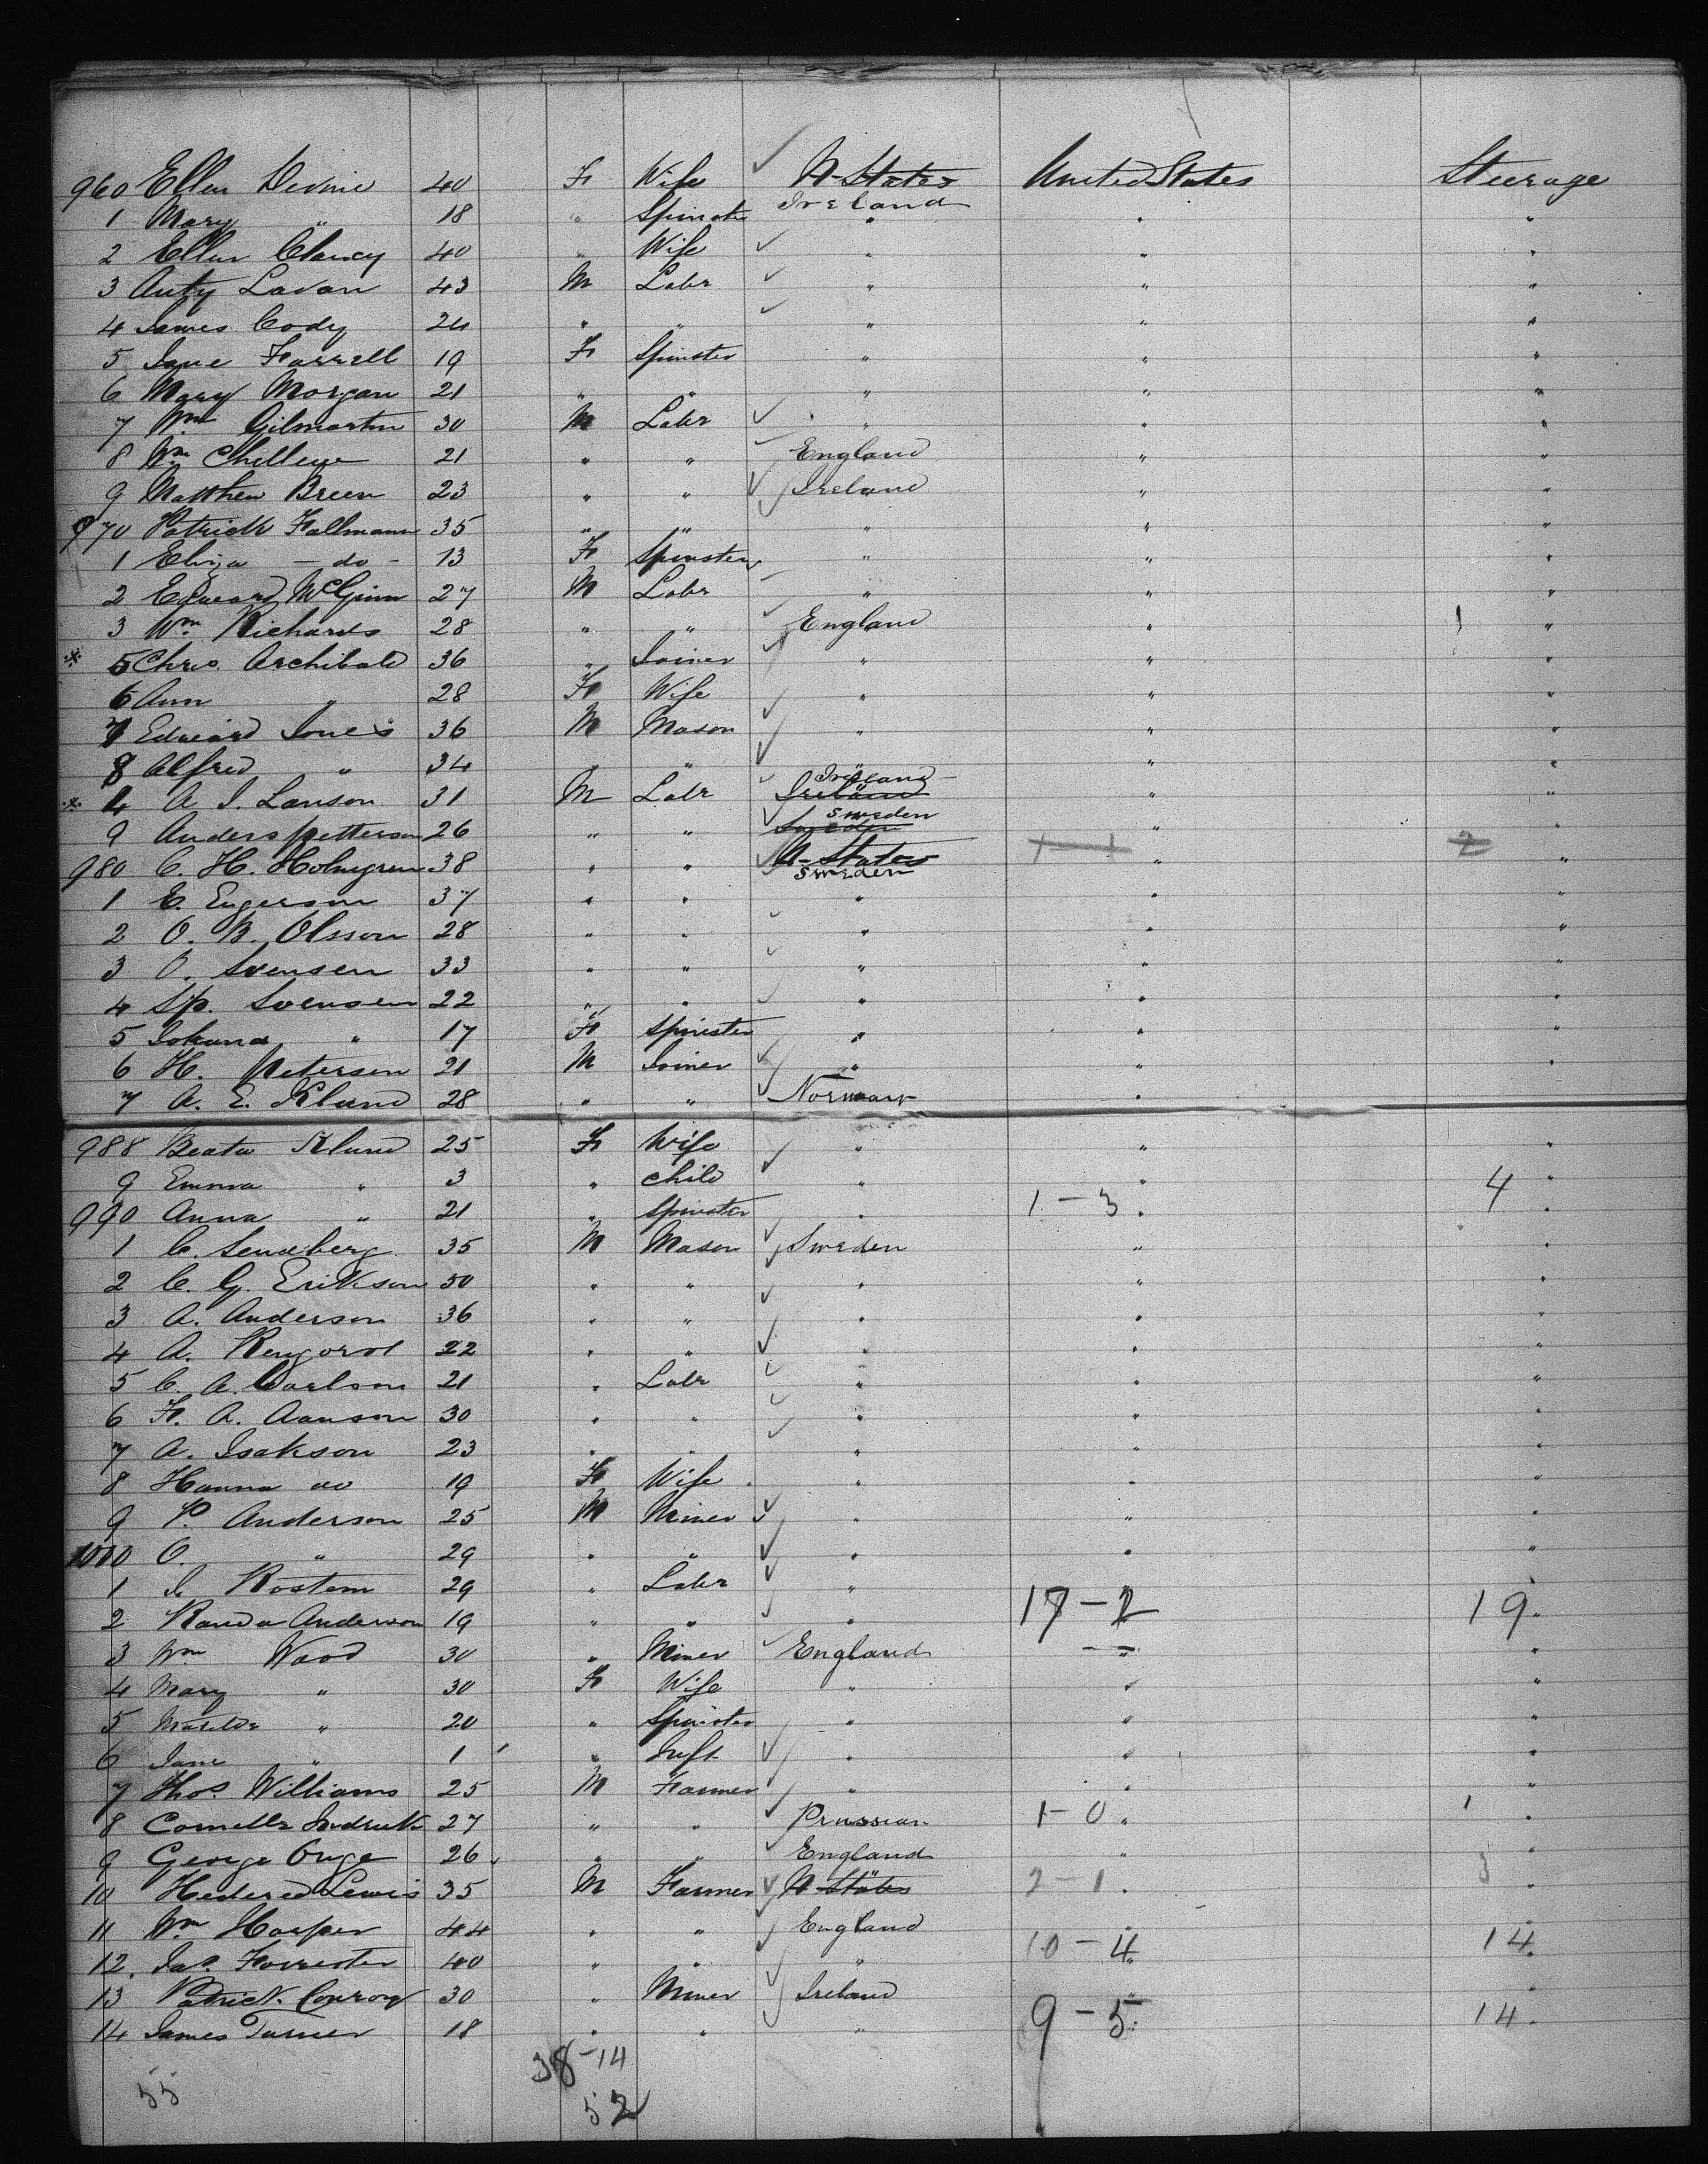 960 Ellen Devine 40 F Wife U-States United States Steerage
1 Mary " 18 " Spinster Ireland " " "
2 Ellen Clancy 40 " Wife " " "
3 Anty Lavan 43 M Labr " " "
4 James Cody 24 " " " " "
5 Jane Farrell 19 F Spinster " " "
6 Mary Morgan 21 " " " " "
7 Wm Gilmartin 30 M Labr " " "
8 Wm 21 " " England " "
9 Matthew Breen 23 " " Ireland " "
970 Patrick Fallmann 35 " " " " "
1 Eliza - do - 13 F Spinster " " "
2 Edward McGinn 27 M Labr " " "
3 Wm Richards 28 " " England " 1 "
* 5 Chris. Archibald 36 " Joiner " " "
6 Ann " 28 F Wife " " "
7 Edward Jones 36 M Mason " " "
8 Alfred " 34 " " " " "
* 4 A J. Lanson 31 M Labr Ireland Ireland " "
9 Anders Petterson 26 " " Sweden Sweden " "
980 C. H. Holmgren 38 " " U-States Sweden " 2 "
1 E. Engerson 37 " " " " "
2 O. B. Olsson 28 " " " " "
3 O. Svensen 33 " " " " "
4 Sp. Svensen 22 " " " " "
5 Johana " 17 F Spinster " " "
6 H. Petersen 21 M Joiner " " "
7 A. E. Klund 28 " " Norway "
988 Beata Klund 25 F Wife " " "
9 Emma " 3 " Child " " 4 "
990 Anna " 21 " Spinster " 1-3 " "
1 C. Sendberg 35 M Mason Sweden " "
2 C. G. Erikson 50 " " " " "
3 A. Anderson 36 " " " " "
4 A. 22 " " " " "
5 C. A. Carlson 21 " Labr " " "
6 F. A. Aanson 30 " " " " "
7 A. Isakson 23 " " " " "
8 Hanna do 19 F Wife " " "
9 P. Anderson 25 M Miner " " "
1000 O. " 29 " " " " "
1 Rostem 29 " Labr " " "
2 Anderson 19 " " " 17-2 19 "
3 Wm Wood 30 " Miner England " "
4 Mary " 30 F Wife " " "
5 Matilda " 20 " Spinster " " "
6 Jane " 1 " Inft " " "
7 Thos Williams 25 M Farmer " " "
8 27 " " Prussian 1-0 " 1 "
9 George Onge 26 " " England " "
10 Lewis 35 M Farmer U-States 2-1 " 3 "
11 Wm Harper 44 " " England " "
12. Jas. Forrester 40 " " " 10-4 " 14 "
13 Patrick Conroy 30 " Miner Ireland " "
14 James Turner 18 " " " 9-5 " 14 "
38-14
55 52